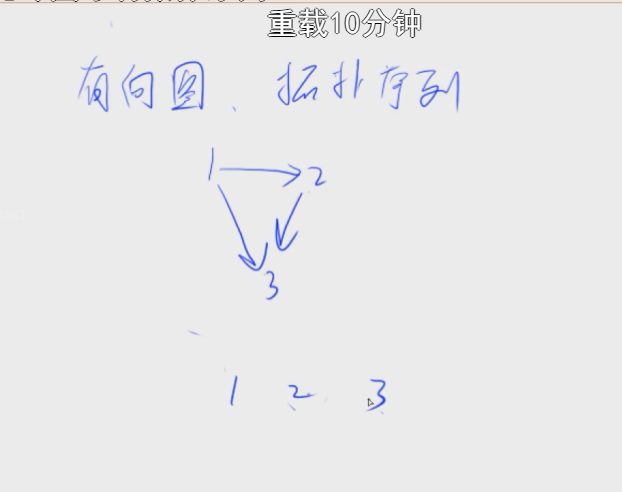 重载10分钟
有向图、拓扑序列
1 2
3
1 2 3